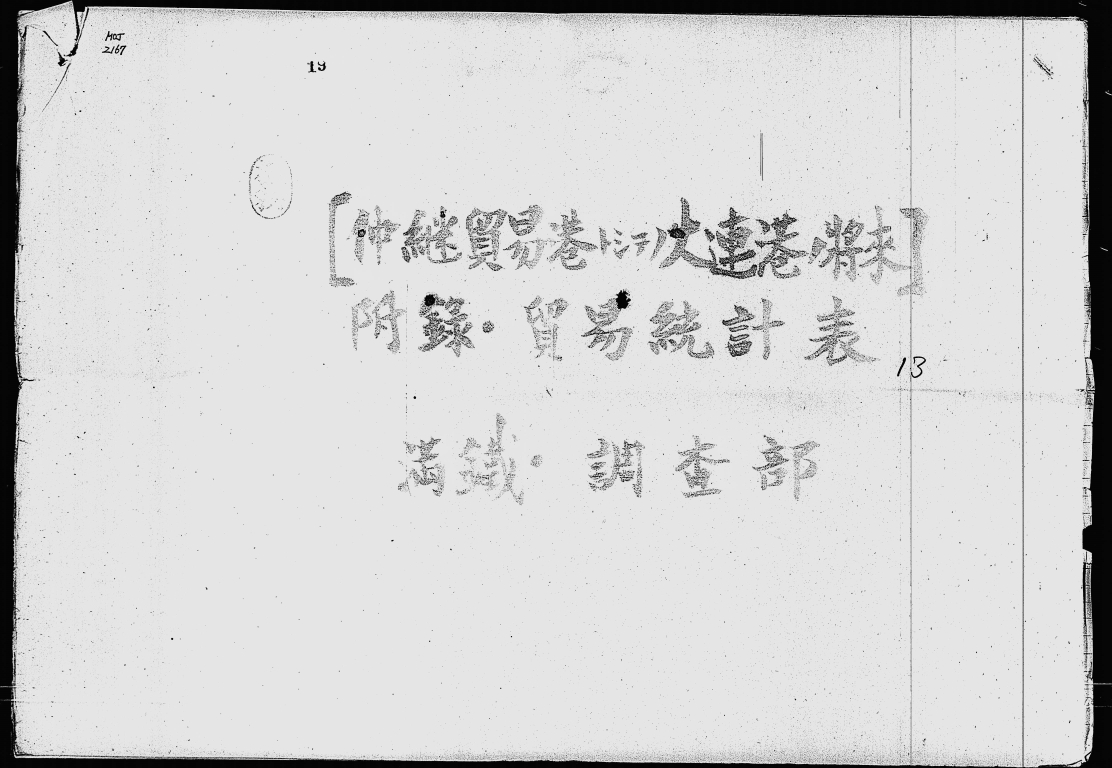 MOJ
2167
19
[仲継貿易港トシテノ大連港ノ將來]
附錄・貿易統計表
13
満鐵・調査部